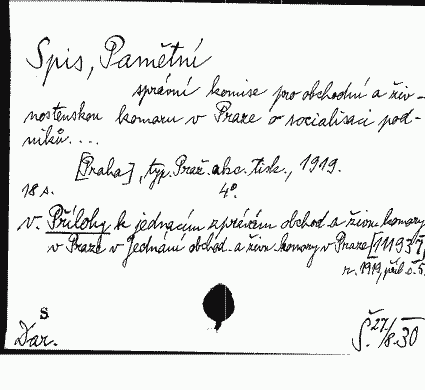 Spis, Pamětní
správní komise pro obchodní a živ-
nostenskou komoru v Praze o socialisaci pod-
niků. ...
[Praha], typ. Praž. akc. tisk., 1919.
18 s. 4°.
v. Přílohy k jednacím zprávám obchod. a živn. komory
v Praze v Jednání obchod. a živn. komory v Praze [11193
r. 1919, příl. č. 5
S
Dar.
Š. 27/8.30